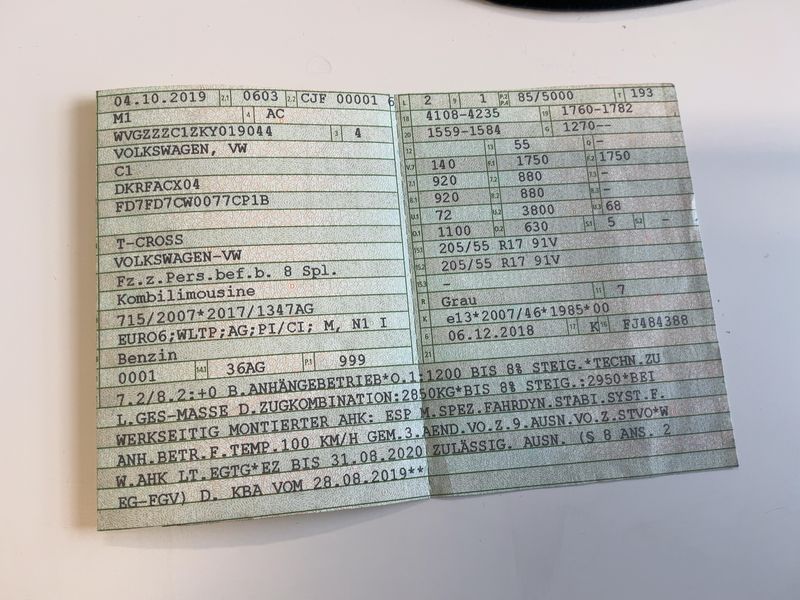 04.10.2019 2.1 0603 2.2 CJF 00001 6
M1 4 AC
WVGZZZC1ZKY019044 3 4
VOLKSWAGEN, VW
C1
DKRFACX04
FD7FD7CW0077CP1B
T-CROSS
VOLKSWAGEN-VW
Fz.z.Pers.bef.b. 8 Spl.
Kombilimousine
715/2007*2017/1347AG
EURO6;WLTP;AG;PI/CI; M, N1 I
Benzin
0001 14.1 36AG P.1 999
L 2 9 1 P.2 P.4 85/5000 T 193
18 4108-4235 19 1760-1782
20 1559-1584 G 1270--
12 - 13 55 Q -
V.7 140 F.1 1750 F.2 1750
7.1 920 7.2 880 7.3 -
8.1 920 8.2 880 8.3 -
U.1 72 U.2 3800 U.3 68
O.1 1100 O.2 630 S.1 5 S.2 -
15.1 205/55 R17 91V
15.2 205/55 R17 91V
15.3 -
R Grau 11 7
K e13*2007/46*1985*00
6 06.12.2018 17 K 16 FJ484388
21
7.2/8.2:+0 B.ANHÄNGEBETRIEB*O.1:1200 BIS 8% STEIG.*TECHN.ZU
L.GES-MASSE D.ZUGKOMBINATION:2850KG*BIS 8% STEIG.:2950*BEI
WERKSEITIG MONTIERTER AHK: ESP M.SPEZ.FAHRDYN.STABI.SYST.F.
ANH.BETR.F.TEMP.100 KM/H GEM.3.AEND.VO.Z.9.AUSN.VO.Z.STVO*W
W.AHK LT.EGTG*EZ BIS 31.08.2020 ZULÄSSIG. AUSN. (§ 8 ANS. 2
EG-FGV) D. KBA VOM 28.08.2019**